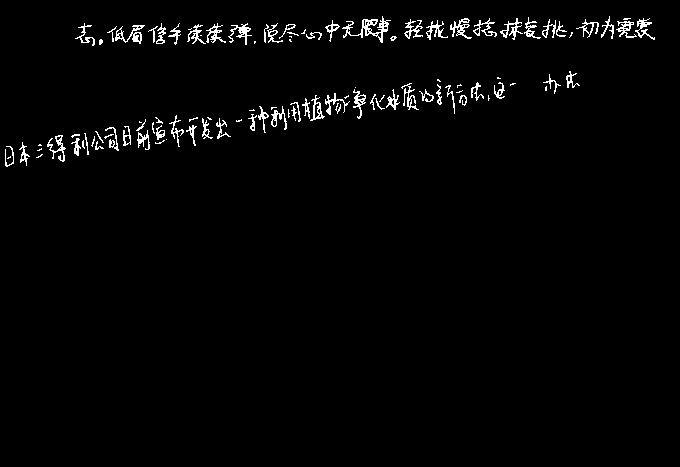 志。低眉信手续续弹，说尽心中无限事。轻拢慢捻抹复挑，初为霓裳
日本三得利公司日前宣布开发出一种利用植物净化水质的新方法，这一 办法